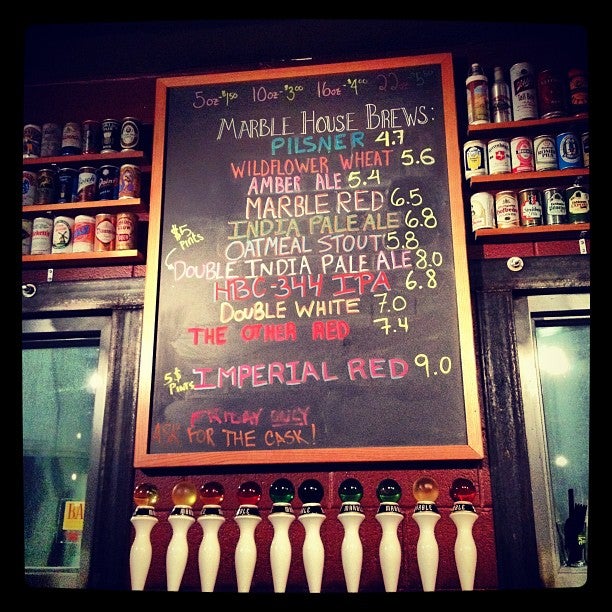 5oz-$1.50 10oz-$3.00 16oz-$4.00 22oz
MARBLE HOUSE BREWS:
PILSNER 4.7
WILDFLOWER WHEAT 5.6
AMBER ALE 5.4
MARBLE RED 6.5
INDIA PALE ALE 6.8
$5 Pints
OATMEAL STOUT 5.8
DOUBLE INDIA PALE ALE 8.0
HBC-344 IPA 6.8
DOUBLE WHITE 7.0
THE OTHER RED 7.4
5.$ Pints IMPERIAL RED 9.0
FRIDAY ONLY
ASK FOR THE CASK!
BA
MARBLE